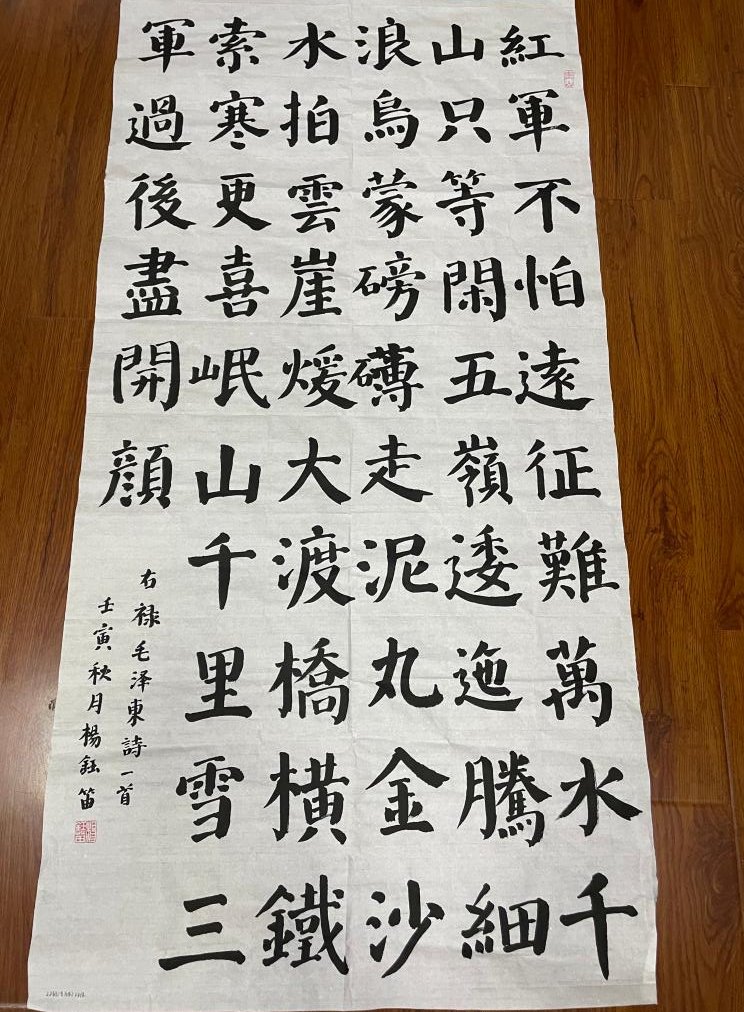 紅軍不怕遠征難萬水千
山只等閑五嶺逶迤騰細
浪烏蒙磅礴走泥丸金沙
水拍雲崖煖大渡橋橫鐵
索寒更喜岷山千里雪三
軍過後盡開顔
右禄毛泽東詩一首
壬寅秋月楊鈺笛